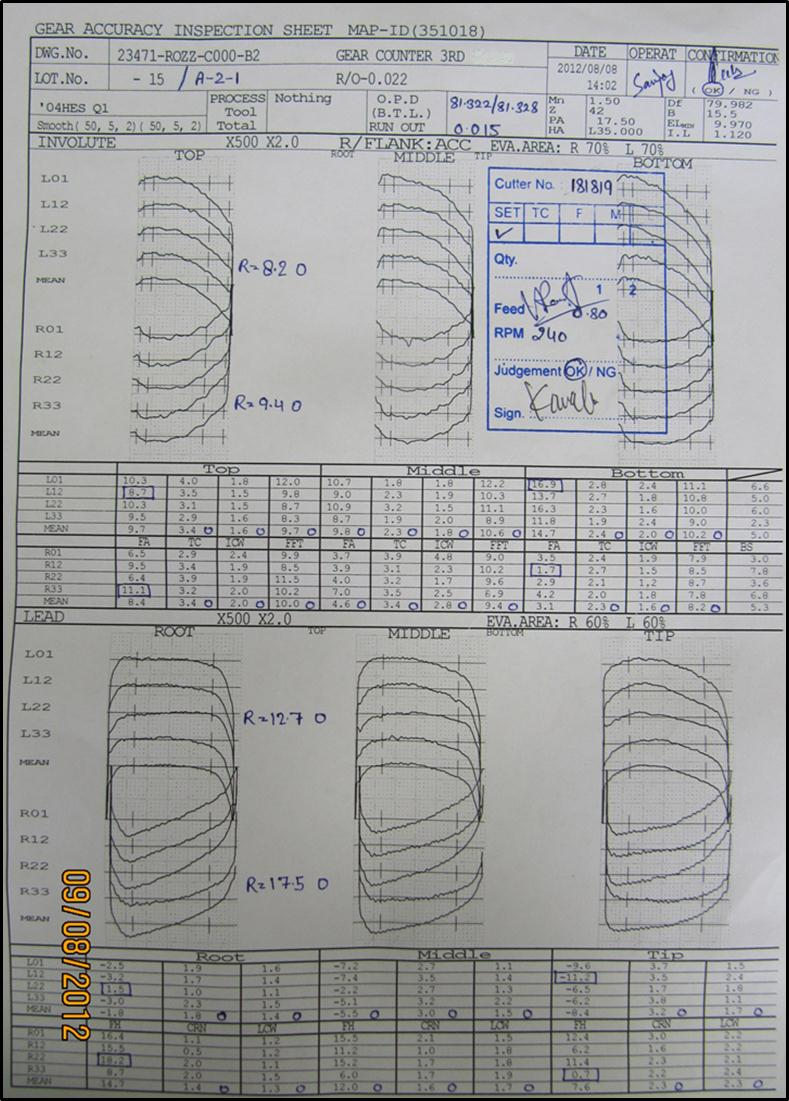 GEAR ACCURACY INSPECTION SHEET MAP-ID(351018)
DWG.No. 23471-ROZZ-C000-B2 GEAR COUNTER 3RD DATE OPERAT CONFIRMATION
LOT.No. - 15 / A-2-1 R/O-0.022 2012/08/08 14:02 Sanjoy (OK / NG)
'04HES Q1 PROCESS Nothing O.P.D 81.322/81.328 Mn 1.50 Df 79.982
Tool (B.T.L.) Z 42 B 15.5
Smooth( 50, 5, 2)( 50, 5, 2) Total RUN OUT 0.015 PA 17.50 9.970
HA L35.000 I.L 1.120
INVOLUTE X500 X2.0 R/FLANK:ACC EVA.AREA: R 70% L 70%
TOP ROOT MIDDLE TIP BOTTOM
L01
L12
L22
L33
MEAN
R01
R12
R22
R33
MEAN
R=8.2 0
R=9.4 0
Cutter No. 181819
SET TC F M
✓
Qty.
1 2
Feed 0.80
RPM 240
Judgement OK / NG
Sign.
Top Middle Bottom
L01 10.3 4.0 1.8 12.0 10.7 1.8 1.8 12.2 16.9 2.8 2.4 11.1 6.6
L12 8.7 3.5 1.5 9.8 9.0 2.3 1.9 10.3 13.7 2.7 1.8 10.8 5.0
L22 10.3 3.1 1.5 8.7 10.9 3.2 1.5 11.1 16.3 2.3 1.6 10.0 6.0
L33 9.5 2.9 1.6 8.3 8.7 1.9 2.0 8.9 11.8 1.9 2.4 9.0 2.3
MEAN 9.7 3.4 0 1.6 0 9.7 0 9.8 0 2.3 0 1.8 0 10.6 0 14.7 2.4 0 2.0 0 10.2 0 5.0
FA TC ICW FFT FA TC ICW FFT FA TC ICW FFT BS
R01 6.5 2.9 2.4 9.9 3.7 3.9 4.8 9.0 3.5 2.4 1.9 7.9 3.0
R12 9.5 3.4 1.9 8.5 3.9 3.1 2.3 10.2 1.7 2.7 1.5 8.5 7.8
R22 6.4 3.9 1.9 11.5 4.0 3.2 1.7 9.6 2.9 2.1 1.2 8.7 3.6
R33 11.1 3.2 2.0 10.2 7.0 3.5 2.5 6.9 4.2 2.0 1.8 7.8 6.8
MEAN 8.4 3.4 0 2.0 0 10.0 0 4.6 0 3.4 0 2.8 0 9.4 0 3.1 2.3 0 1.6 0 8.2 0 5.3
LEAD X500 X2.0 EVA.AREA: R 60% L 60%
ROOT TOP MIDDLE BOTTOM TIP
L01
L12
L22
L33
MEAN
R01
R12
R22
R33
MEAN
R=12.7 0
R=17.5 0
09/08/2012
Root Middle Tip
L01 -2.5 1.9 1.6 -7.2 2.7 1.1 -9.6 3.7 1.5
L12 -3.2 1.7 1.4 -7.4 3.5 1.4 -11.2 3.5 2.4
L22 1.5 1.0 1.1 -2.2 2.7 1.3 -6.5 1.7 1.8
L33 -3.0 2.3 1.5 -5.1 3.2 2.2 -6.2 3.8 1.1
MEAN -1.8 1.8 0 1.4 0 -5.5 0 3.0 0 1.5 0 -8.4 3.2 0 1.7 0
FH CRN LCW FH CRN LCW FH CRN LCW
R01 16.4 1.1 1.2 15.5 2.1 1.5 12.4 3.0 2.2
R12 15.5 0.5 1.2 11.2 1.0 1.8 6.2 1.6 2.2
R22 18.2 2.0 1.1 15.2 1.7 1.8 11.4 2.3 2.1
R33 8.7 2.0 1.5 6.0 1.7 1.9 0.7 2.2 2.4
MEAN 14.7 1.4 0 1.3 0 12.0 0 1.6 0 1.7 0 7.6 2.3 0 2.3 0